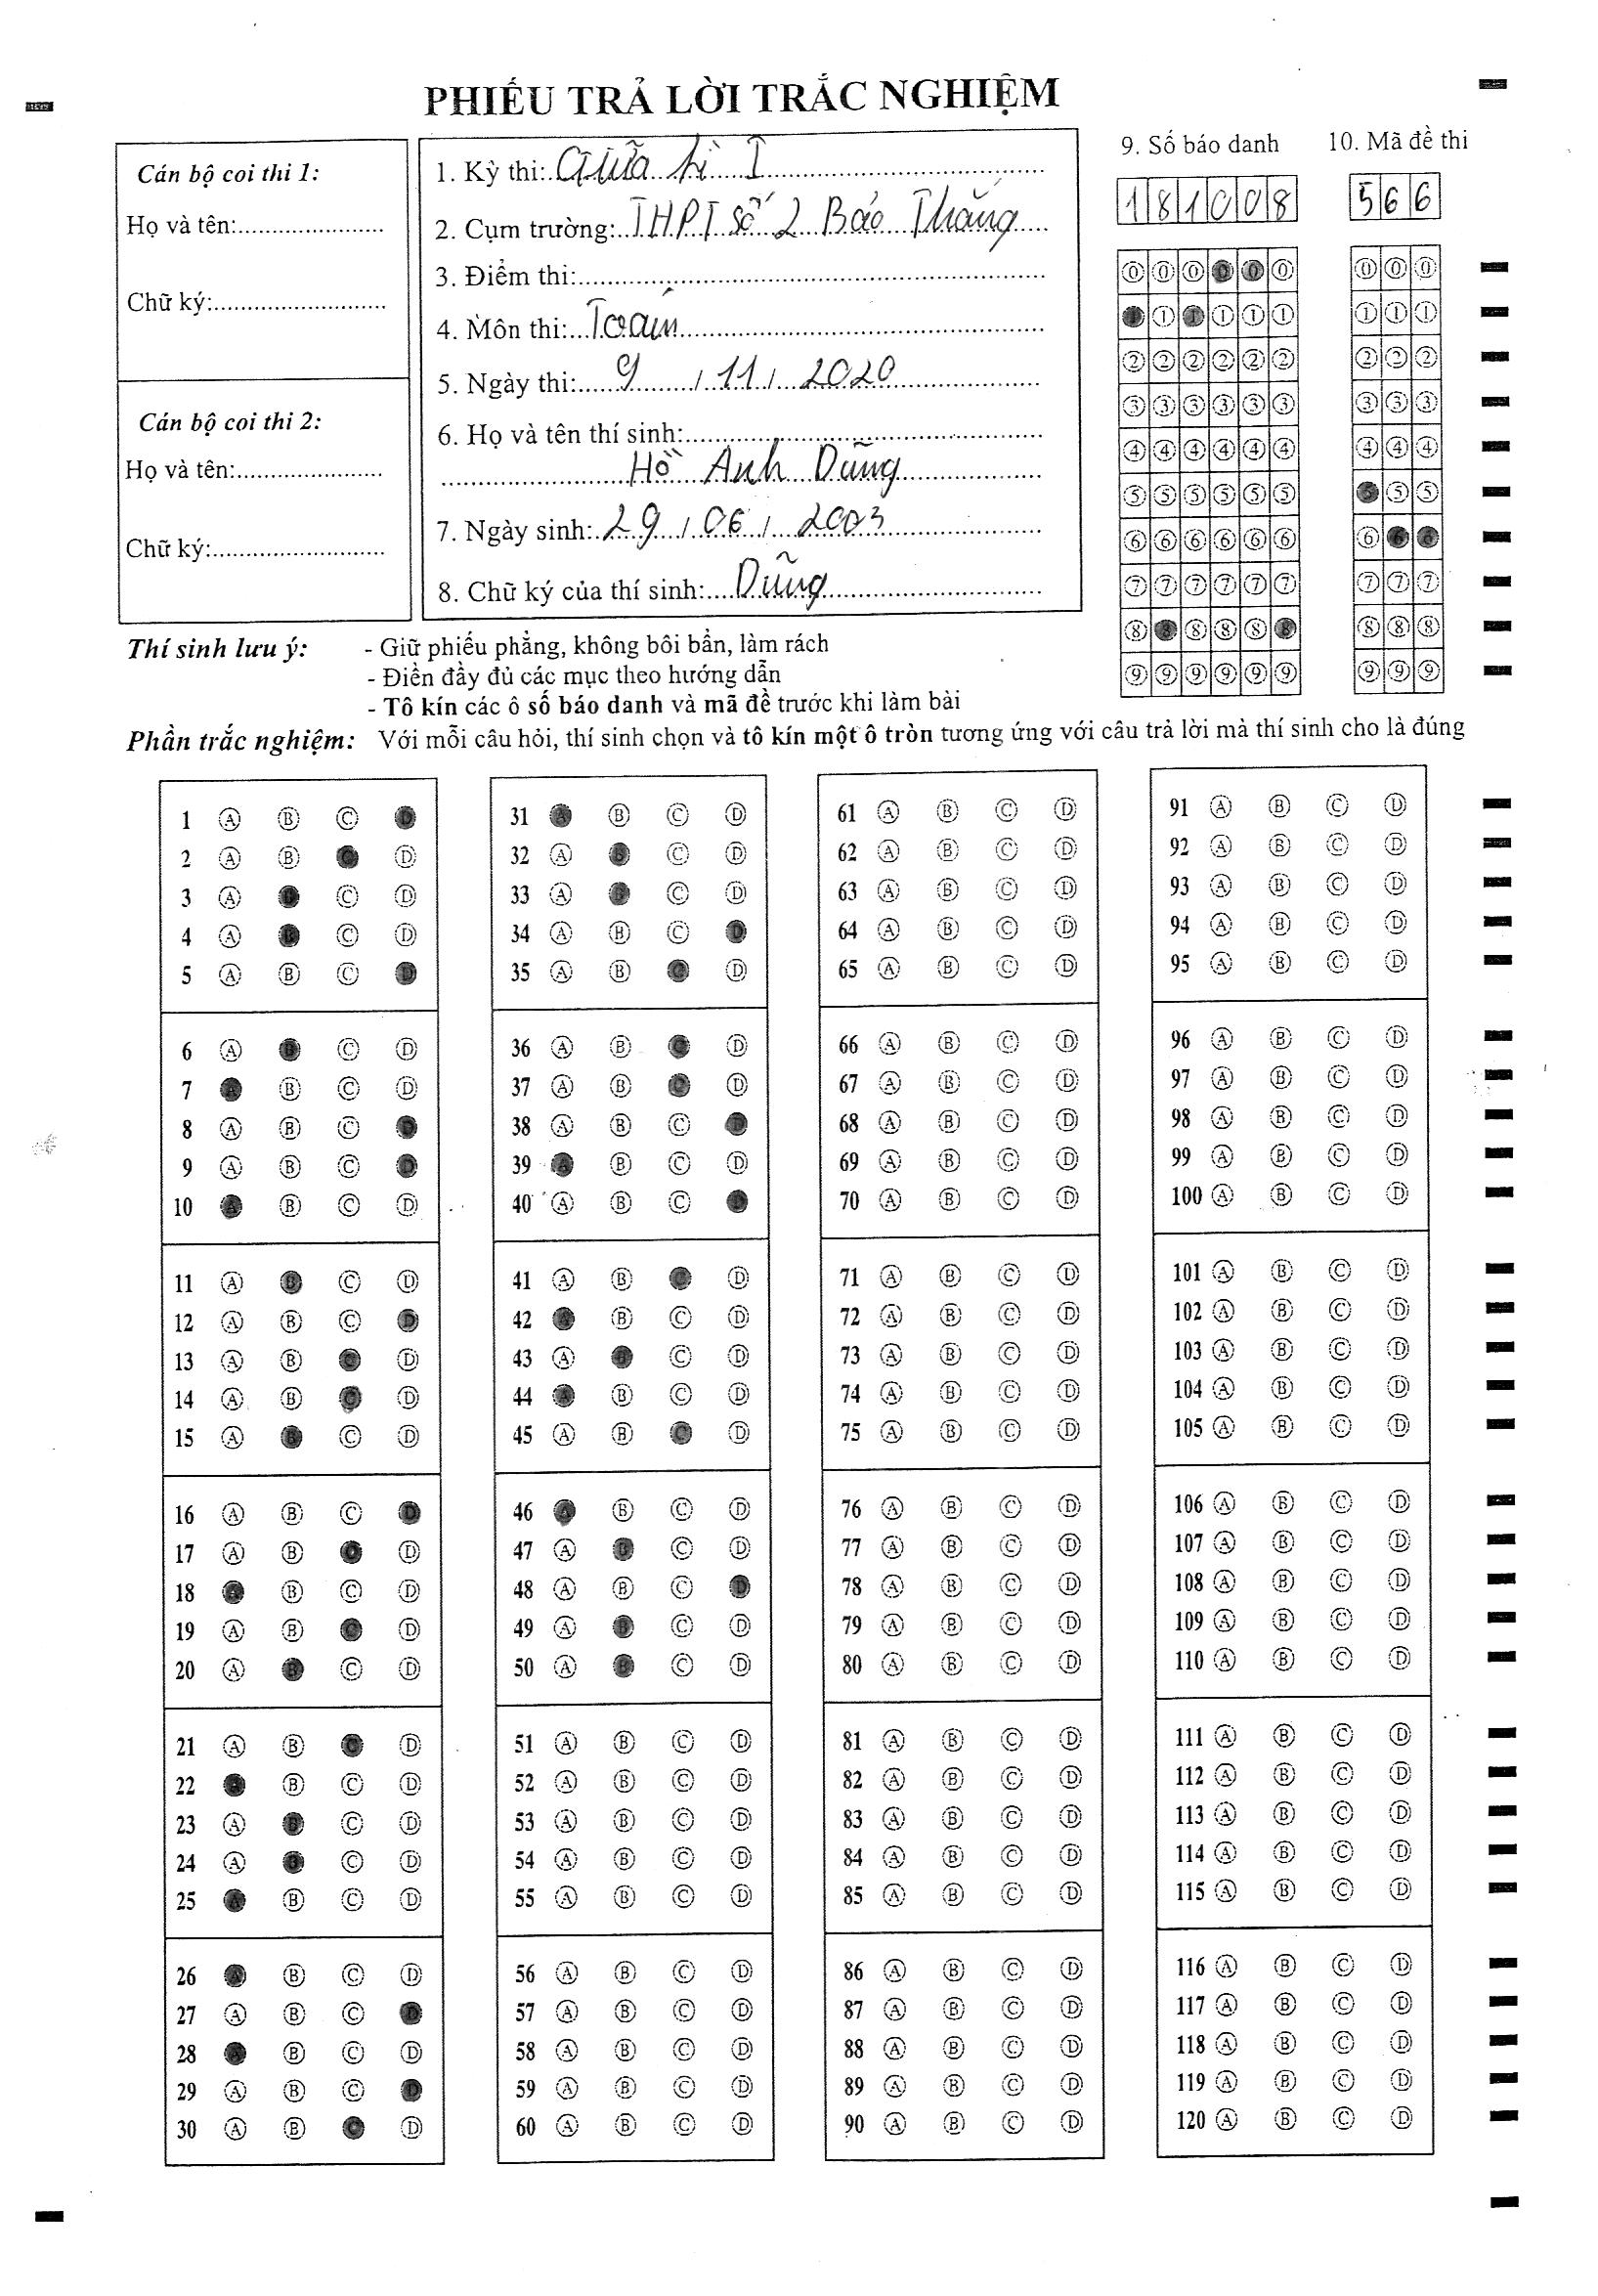 PHIẾU TRẢ LỜI TRẮC NGHIỆM
Cán bộ coi thi 1:
Họ và tên:
Chữ ký:
Cán bộ coi thi 2:
Họ và tên:
Chữ ký:
1. Kỳ thi: Giữa kì I
2. Cụm trường: THPT số 2 Bảo Thắng
3. Điểm thi:
4. Môn thi: Toán
5. Ngày thi: 9 / 11 / 2020
6. Họ và tên thí sinh:
Hồ Anh Dũng
7. Ngày sinh: 29 / 06 / 2003
8. Chữ ký của thí sinh: Dũng
9. Số báo danh
1 8 1 0 0 8
0 0 0 0 0 0
1 1 1 1 1 1
2 2 2 2 2 2
3 3 3 3 3 3
4 4 4 4 4 4
5 5 5 5 5 5
6 6 6 6 6 6
7 7 7 7 7 7
8 8 8 8 8 8
9 9 9 9 9 9
10. Mã đề thi
5 6 6
0 0 0
1 1 1
2 2 2
3 3 3
4 4 4
5 5 5
6 6 6
7 7 7
8 8 8
9 9 9
Thí sinh lưu ý: - Giữ phiếu phẳng, không bôi bẩn, làm rách
- Điền đầy đủ các mục theo hướng dẫn
- Tô kín các ô số báo danh và mã đề trước khi làm bài
Phần trắc nghiệm: Với mỗi câu hỏi, thí sinh chọn và tô kín một ô tròn tương ứng với câu trả lời mà thí sinh cho là đúng
1 A B C D
2 A B C D
3 A B C D
4 A B C D
5 A B C D
6 A B C D
7 A B C D
8 A B C D
9 A B C D
10 A B C D
11 A B C D
12 A B C D
13 A B C D
14 A B C D
15 A B C D
16 A B C D
17 A B C D
18 A B C D
19 A B C D
20 A B C D
21 A B C D
22 A B C D
23 A B C D
24 A B C D
25 A B C D
26 A B C D
27 A B C D
28 A B C D
29 A B C D
30 A B C D
31 A B C D
32 A B C D
33 A B C D
34 A B C D
35 A B C D
36 A B C D
37 A B C D
38 A B C D
39 A B C D
40 A B C D
41 A B C D
42 A B C D
43 A B C D
44 A B C D
45 A B C D
46 A B C D
47 A B C D
48 A B C D
49 A B C D
50 A B C D
51 A B C D
52 A B C D
53 A B C D
54 A B C D
55 A B C D
56 A B C D
57 A B C D
58 A B C D
59 A B C D
60 A B C D
61 A B C D
62 A B C D
63 A B C D
64 A B C D
65 A B C D
66 A B C D
67 A B C D
68 A B C D
69 A B C D
70 A B C D
71 A B C D
72 A B C D
73 A B C D
74 A B C D
75 A B C D
76 A B C D
77 A B C D
78 A B C D
79 A B C D
80 A B C D
81 A B C D
82 A B C D
83 A B C D
84 A B C D
85 A B C D
86 A B C D
87 A B C D
88 A B C D
89 A B C D
90 A B C D
91 A B C D
92 A B C D
93 A B C D
94 A B C D
95 A B C D
96 A B C D
97 A B C D
98 A B C D
99 A B C D
100 A B C D
101 A B C D
102 A B C D
103 A B C D
104 A B C D
105 A B C D
106 A B C D
107 A B C D
108 A B C D
109 A B C D
110 A B C D
111 A B C D
112 A B C D
113 A B C D
114 A B C D
115 A B C D
116 A B C D
117 A B C D
118 A B C D
119 A B C D
120 A B C D